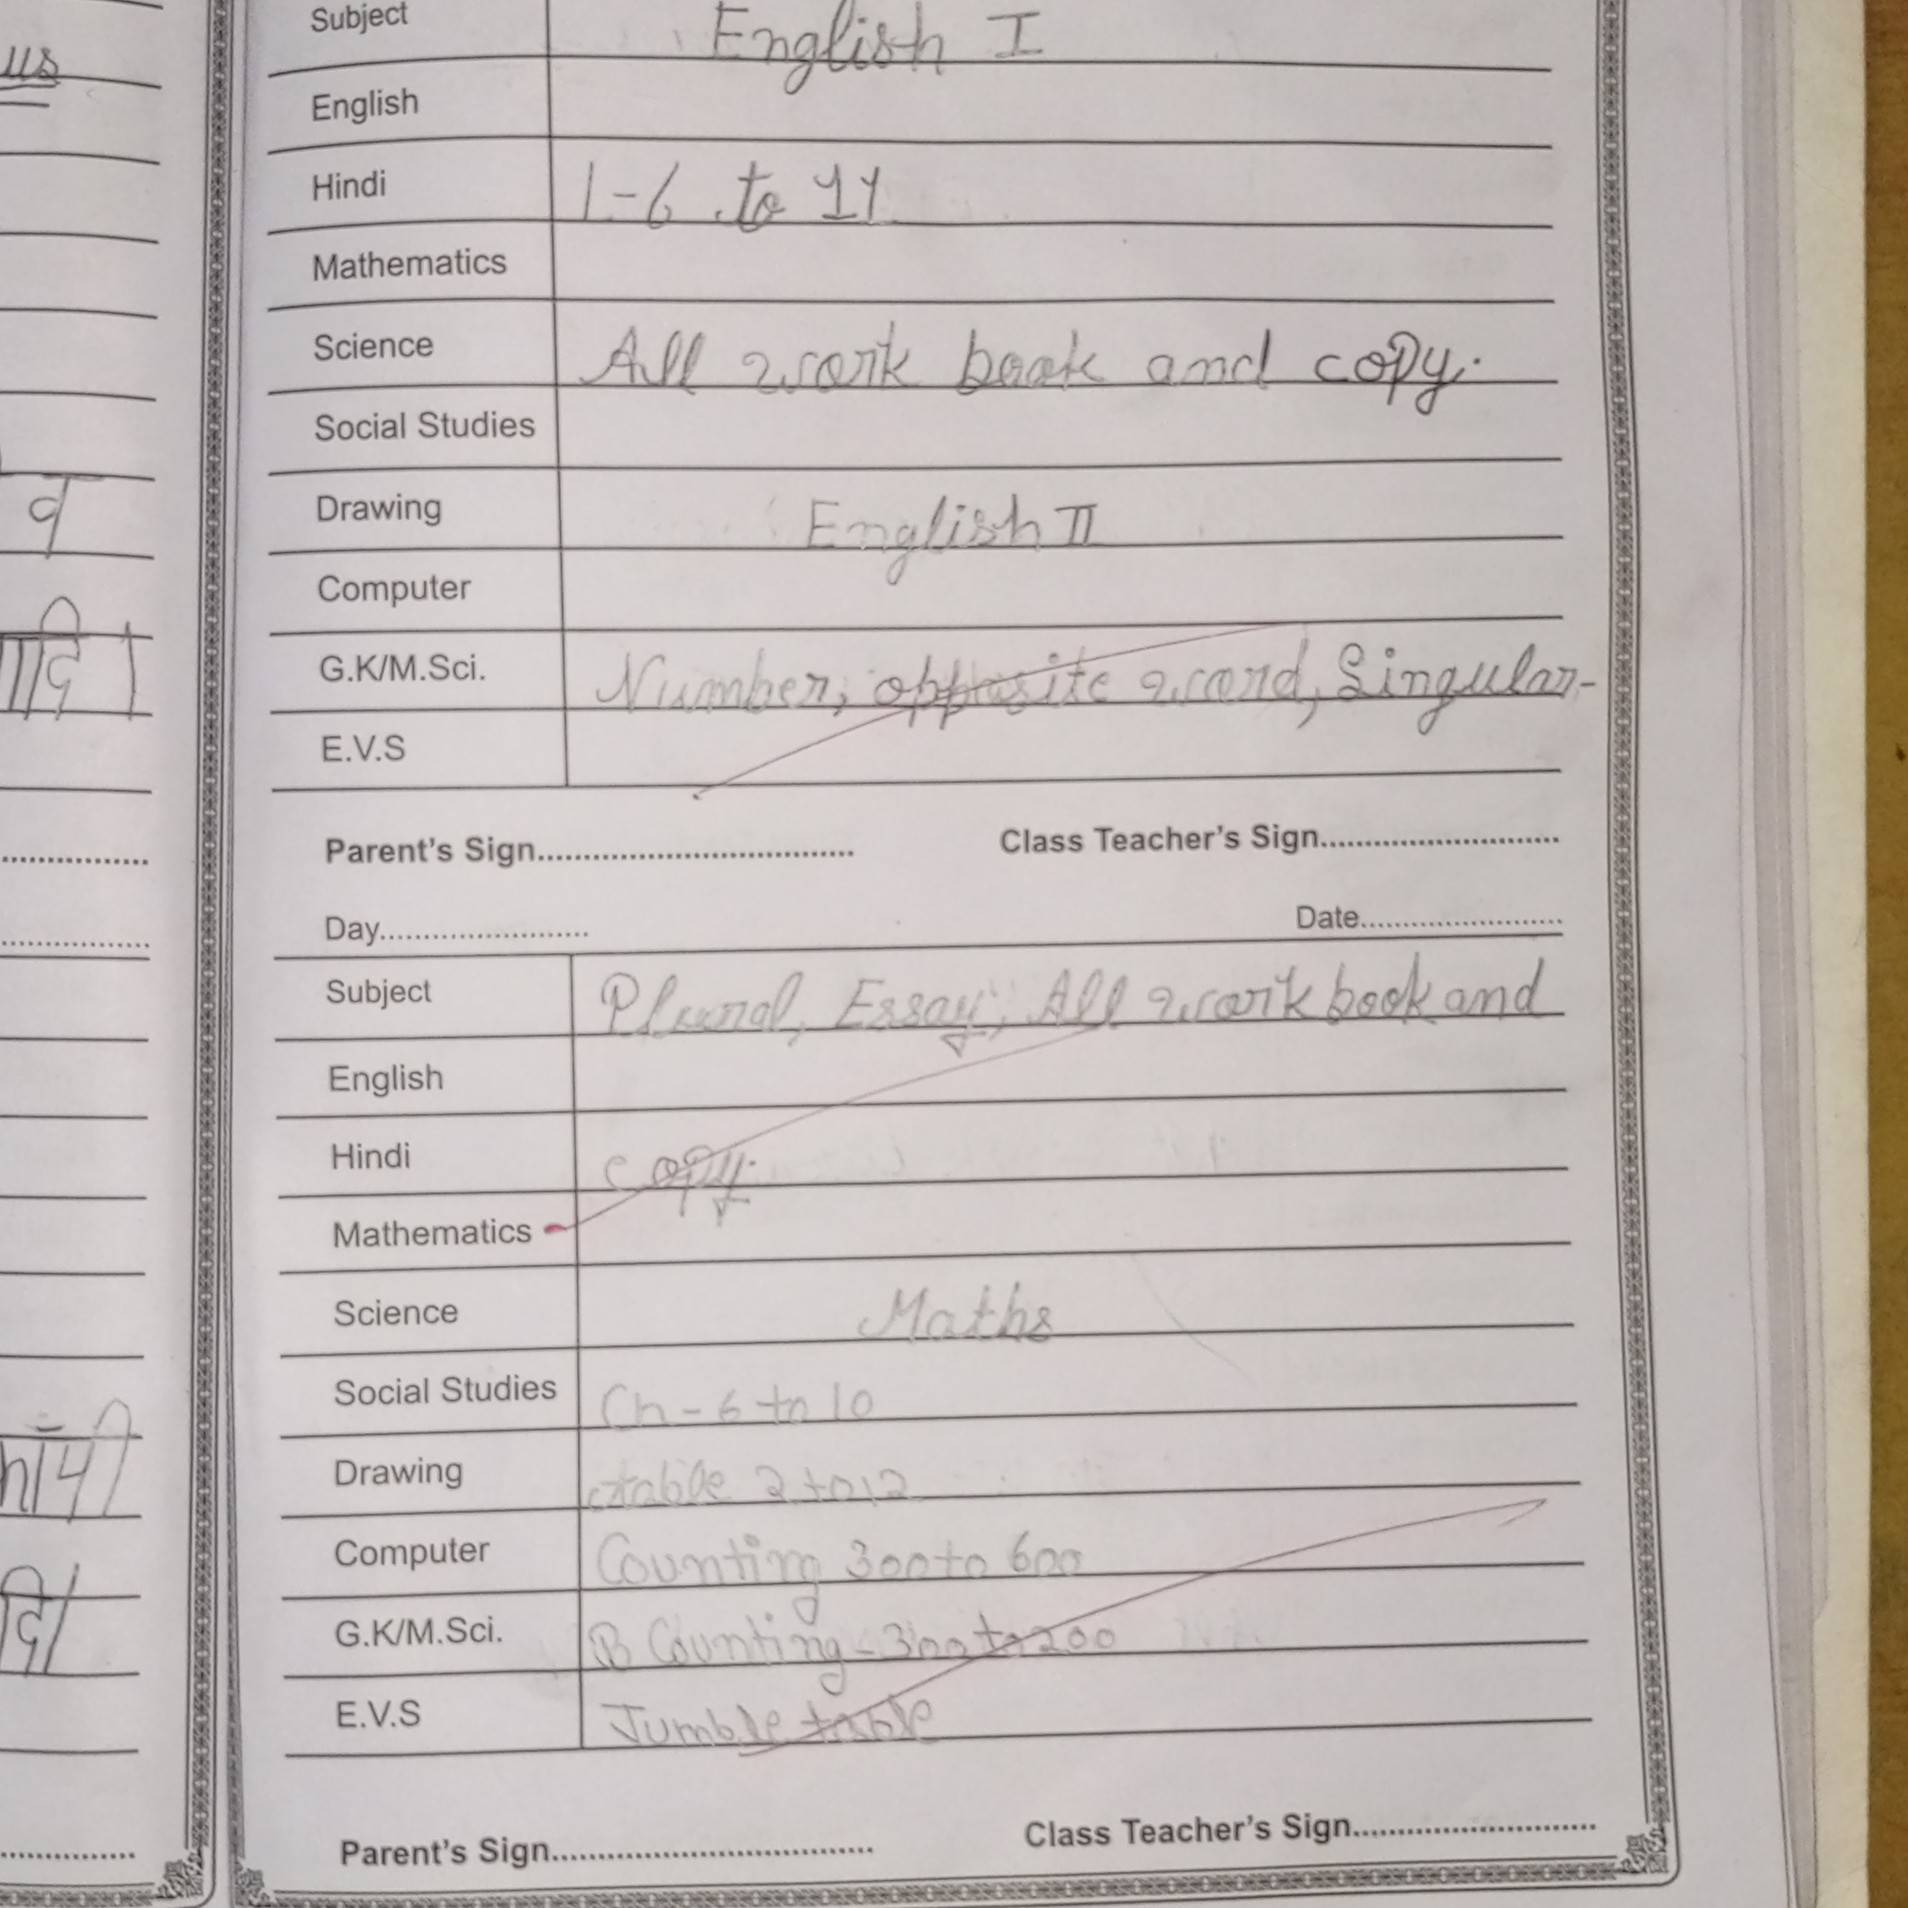 us
Subject English I
English
Hindi 1-6 to 11
Mathematics
Science All work book and copy.
Social Studies
Drawing English II
Computer
G.K/M.Sci. Number, opposite word, Singular-
E.V.S
Parent's Sign.................................... Class Teacher's Sign..........................
Day........................ Date......................
Subject Plural, Essay, All work book and
English
Hindi copy.
Mathematics
Science Maths
Social Studies Ch-6 to 10
Drawing table 2 to 12
Computer Counting 300 to 600
G.K/M.Sci. B Counting - 300 to 200
E.V.S Jumble table
Parent's Sign.................................... Class Teacher's Sign...........................